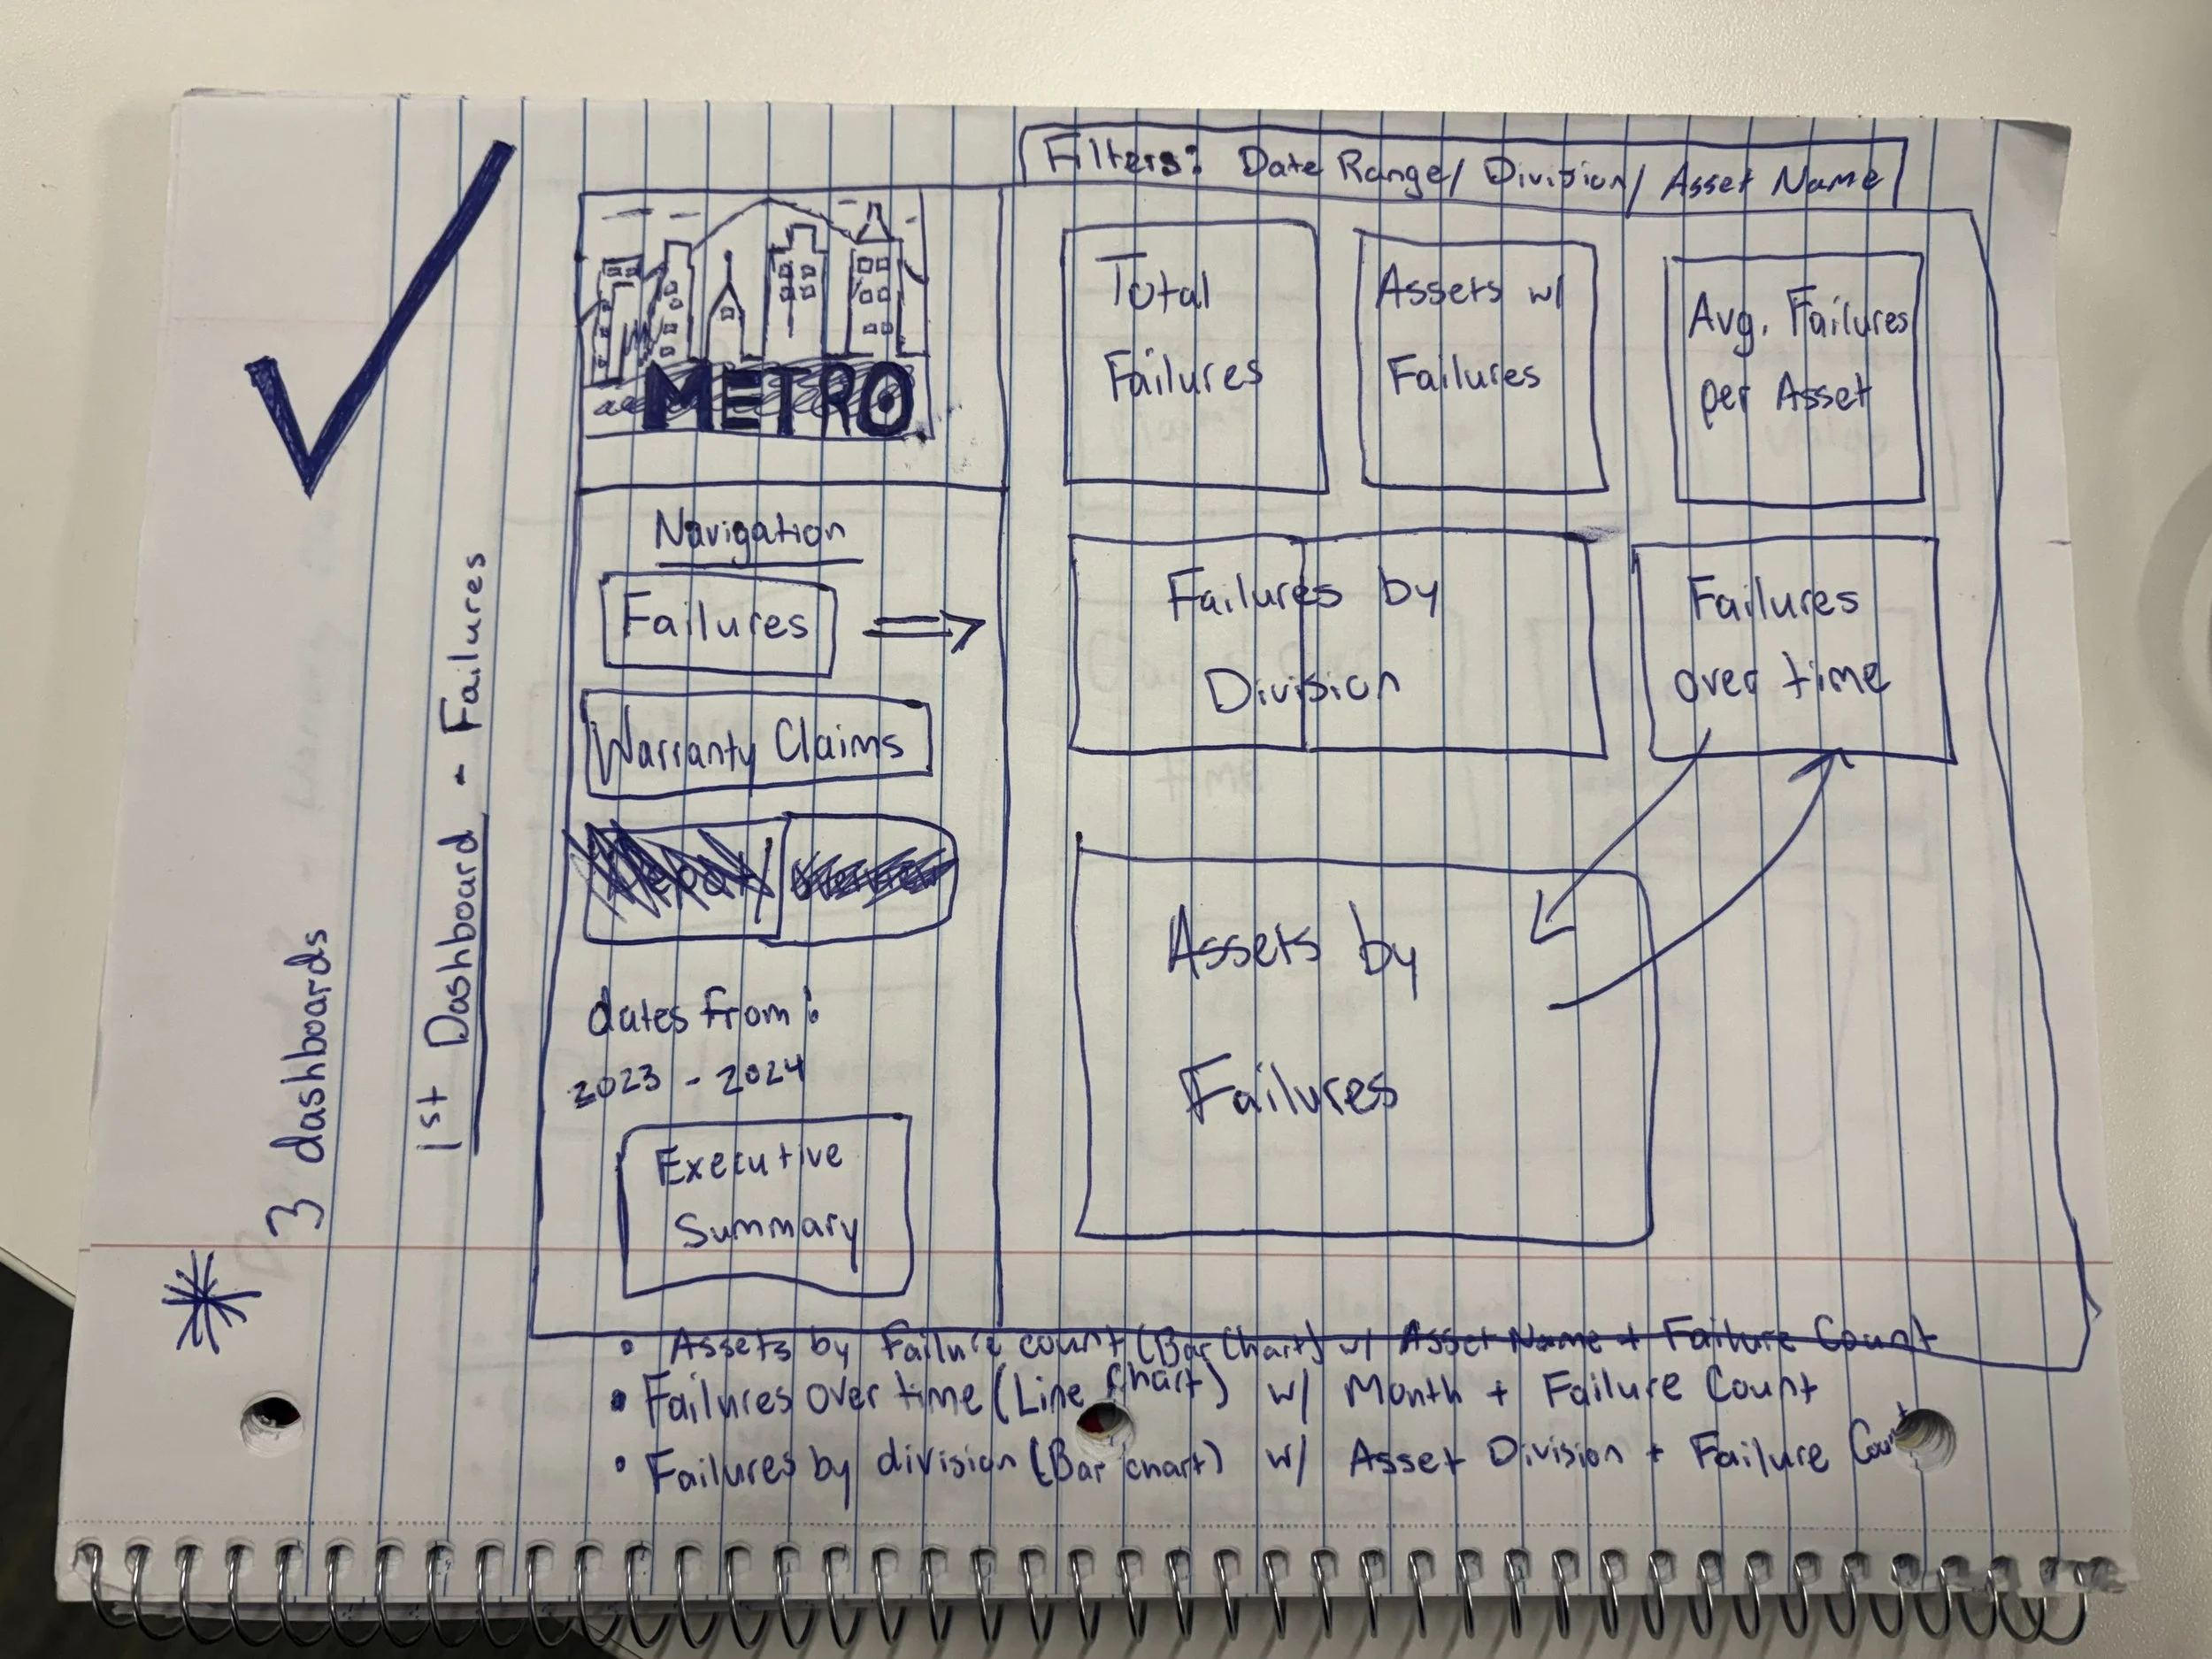 3 dashboards
1st Dashboard - Failures
Filters: Date Range/ Division/ Asset Name
METRO
Navigation
Failures
Warranty Claims
dates from:
2023 - 2024
Executive
Summary
Total
Failures
Assets w/
Failures
Avg. Failures
per Asset
Failures by
Division
Failures
over time
Assets by
Failures
• Assets by Failure count (Bar Chart) w/ Asset Name + Failure Count
• Failures over time (Line Chart) w/ Month + Failure Count
• Failures by division (Bar chart) w/ Asset Division + Failure Count